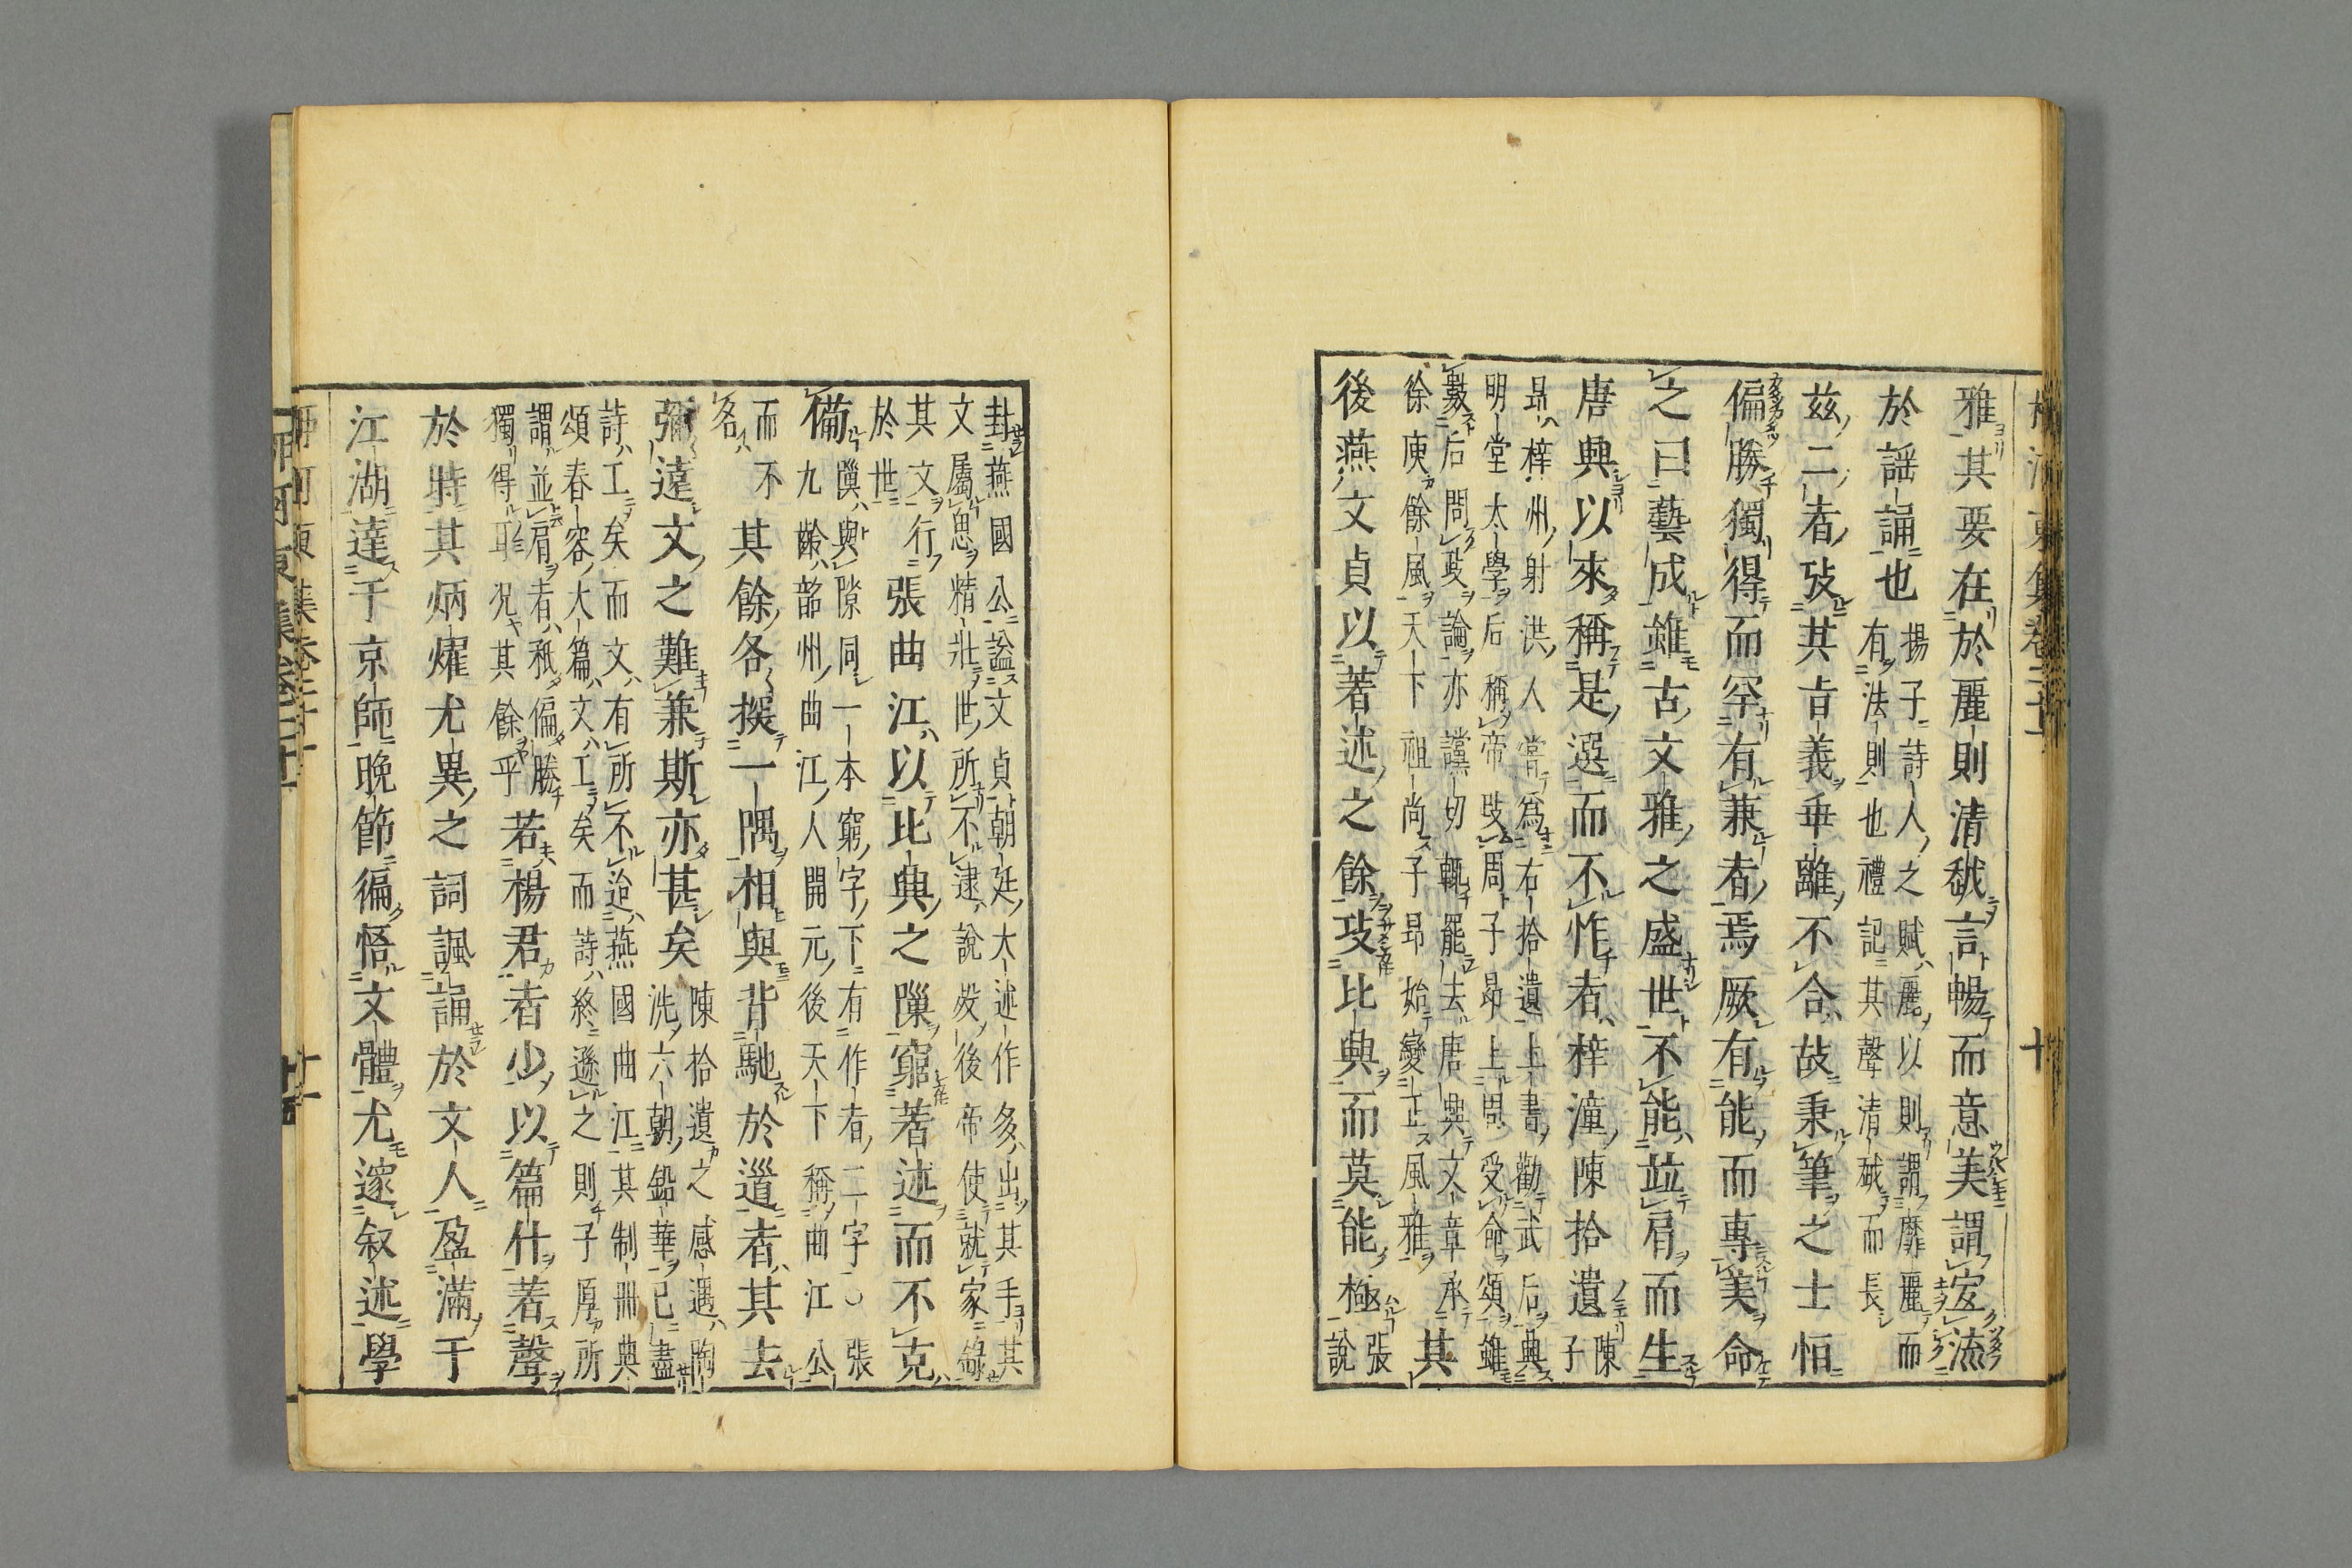 雅其要在於麗則清越言暢而意美謂宜流
於謡誦也揚子詩人之賦麗以則謂靡麗而
有法則也禮記其聲清越而長
茲二者攷其㫖義乖離不合故秉筆之士恒
偏勝獨得而罕有兼者焉厥有能而專美命
之曰藝成雖古文雅之盛世不能竝肩而生
唐興以來稱是選而不怍者梓潼陳拾遺陳子
昻梓州射洪人嘗爲右拾遺上書勸武后興
明堂太學后稱帝攺周子昻上周受命頌雖
數后問政論亦讜切輒罷去唐興文章承
徐庾餘風天下祖尚子昻始變正風雅其
後燕文貞以著述之餘攻比興而莫能極張說
封燕國公謚文貞朝廷大述作多出其手其
文屬思精壯世所不逮說殁後帝使就家錄
其文行
於世張曲江以比興之隟窮著述而不克
備隟與隙同一本窮字下有作者二字○張
九齡韶州曲江人開元後天下稱曲江公
而不
名其餘各探一隅相與背馳於道者其去
彌遠文之難兼斯亦甚矣陳拾遺之感遇陶
洗六朝鉛華已盡
詩工矣而文有所不逮燕國曲江其制冊典
頌春容大篇文工矣而詩終遜之則子厚所
謂並肩者秪偏勝
獨得耳况其餘乎若楊君者少以篇什著聲
於時其炳燿尤異之詞諷誦於文人盈滿于
江湖達于京師晩節徧悟文體尤邃叙述學